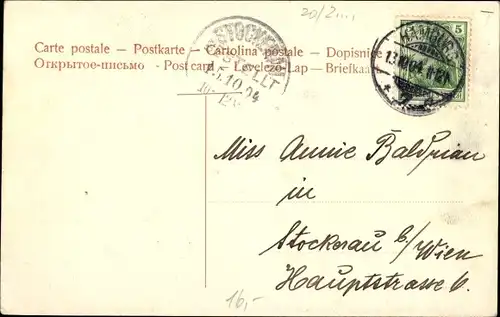 20/2....
Carte postale – Postkarte – Cartolina postale – Dopisnice
Открытое-письмо - Post card - Levelező-Lap – Briefkaa
STOCKERAU
BESTELLT
15.10.04
5
HAMBURG
Miss Annie Baldrian
in
Stockerau b/Wien
Hauptstrasse 6.
16,-